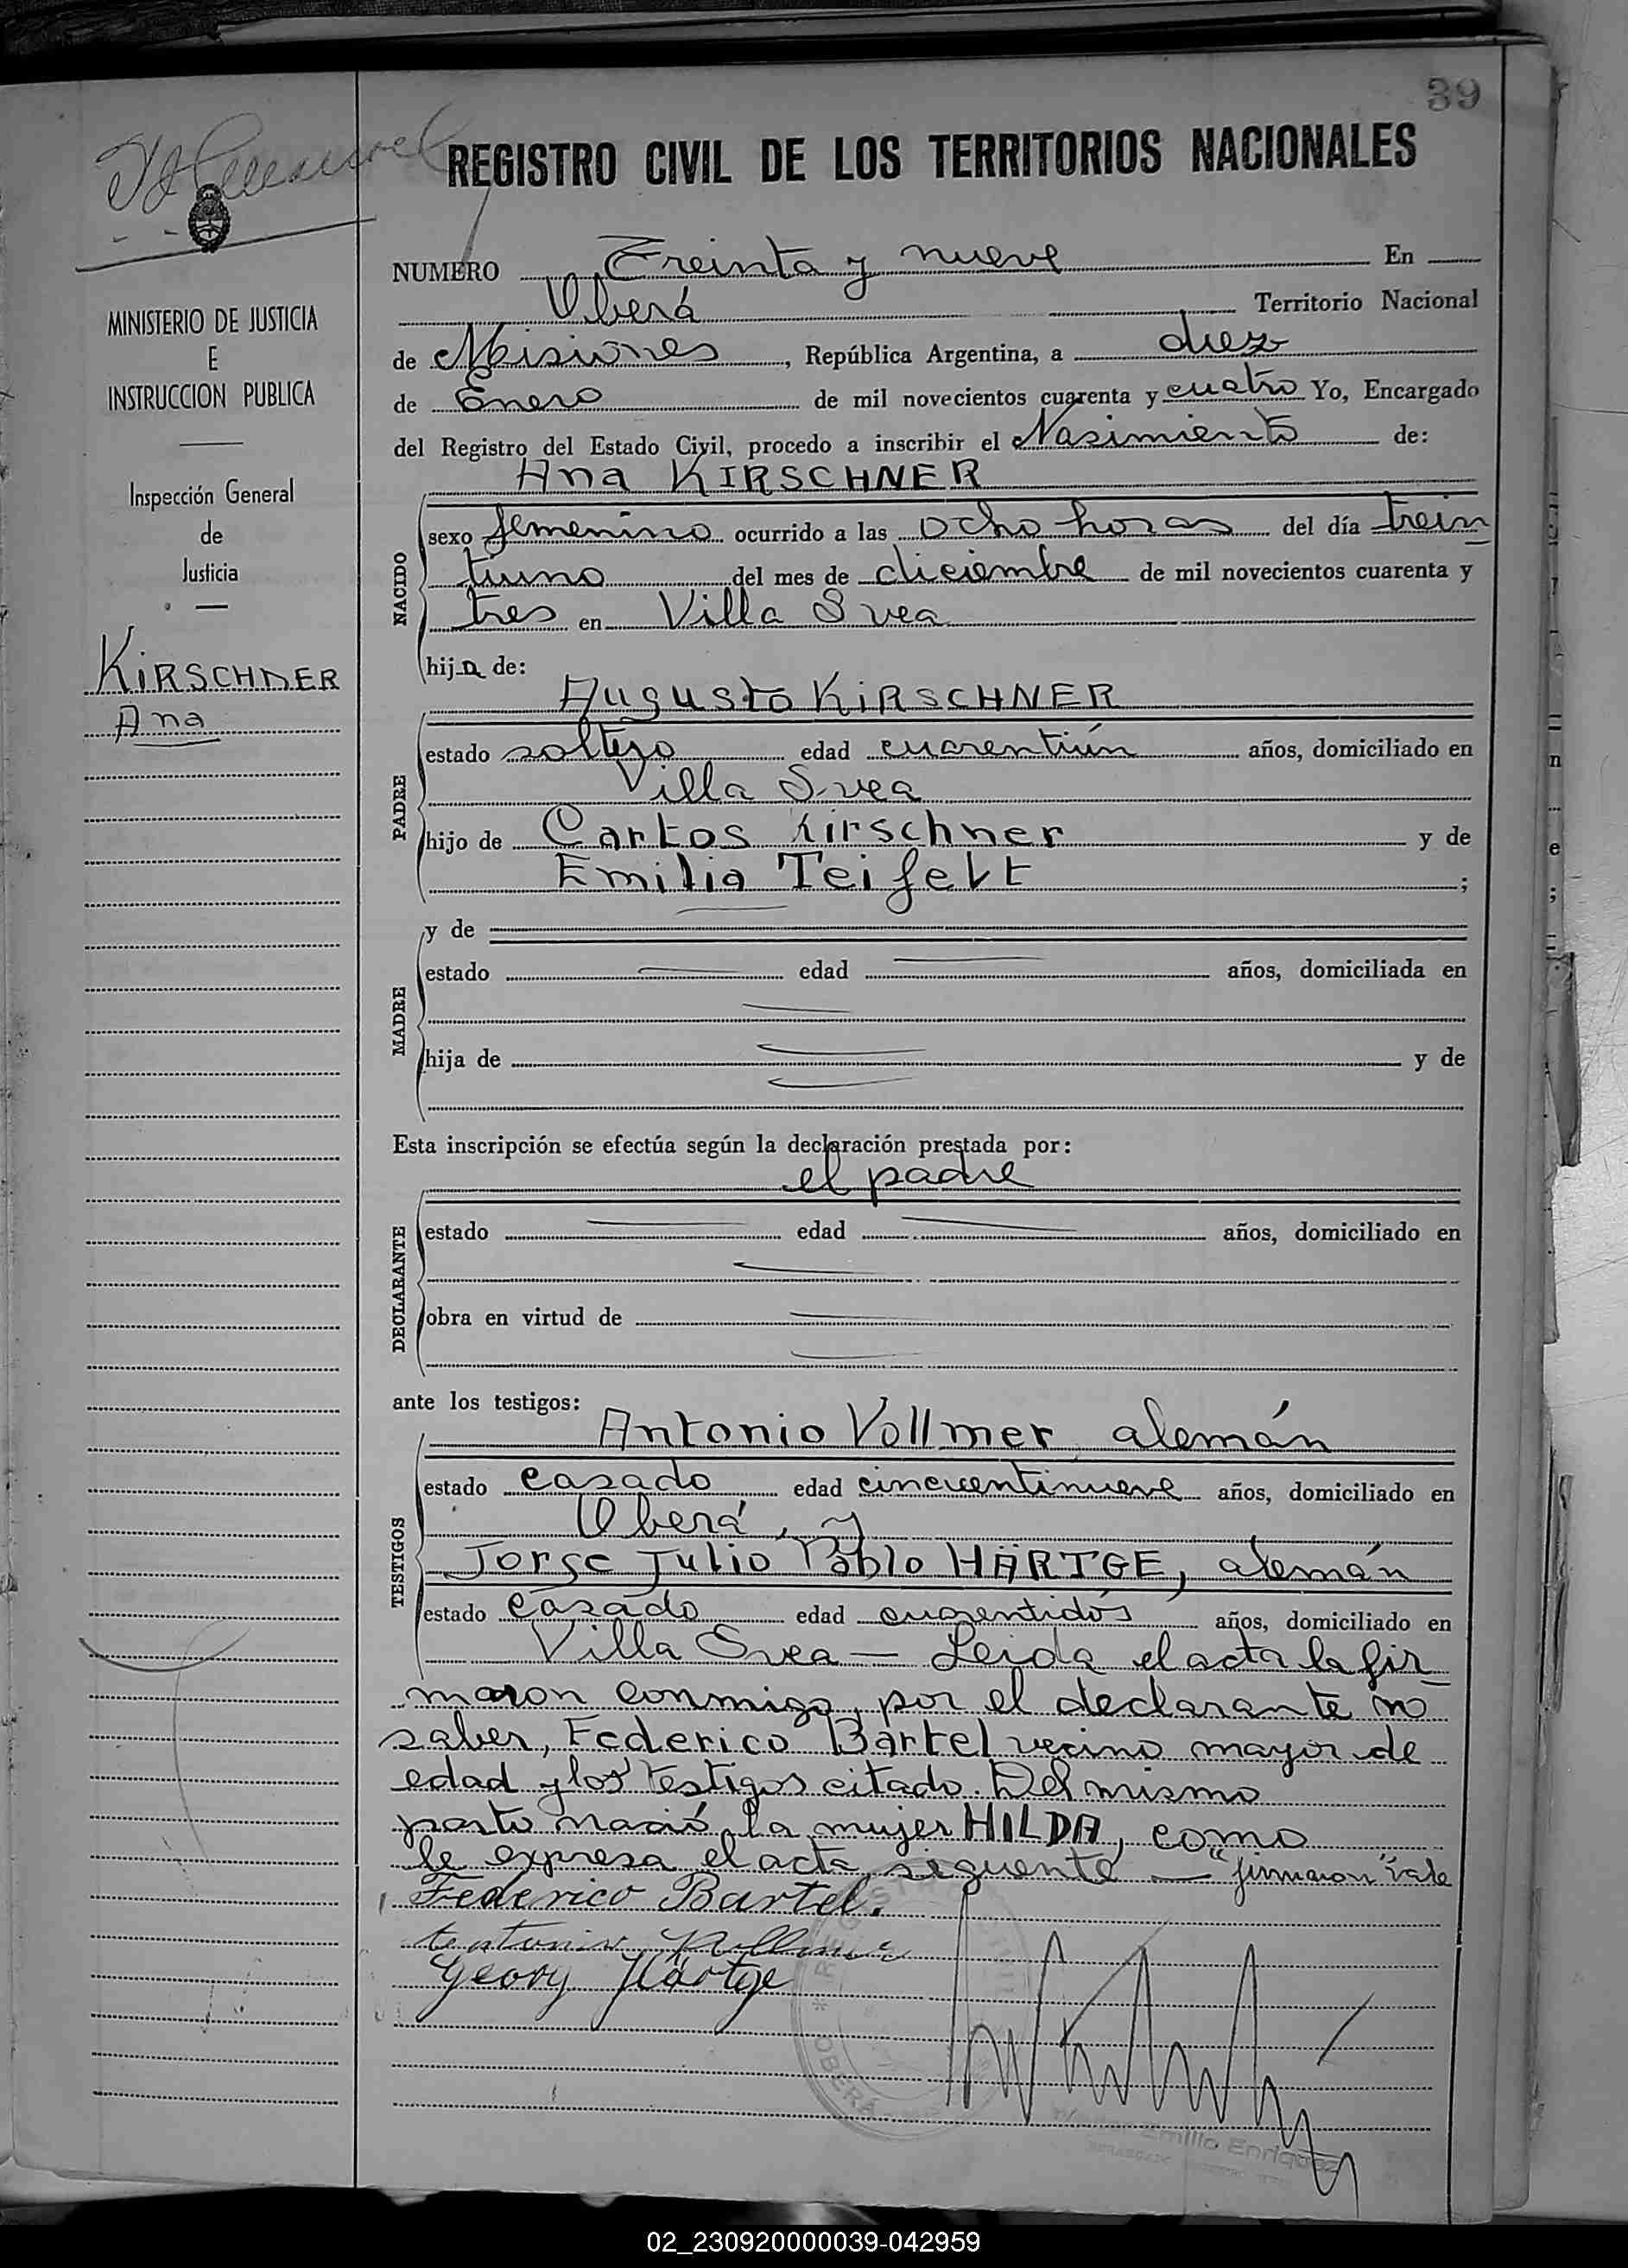 39
REGISTRO CIVIL DE LOS TERRITORIOS NACIONALES
MINISTERIO DE JUSTICIA
E
INSTRUCCION PUBLICA
Inspección General
de
Justicia
KIRSCHNER
Ana
NUMERO Treinta y nueve En
Oberá Territorio Nacional
de Misiones, República Argentina, a diez
de Enero de mil novecientos cuarenta y cuatro Yo, Encargado
del Registro del Estado Civil, procedo a inscribir el Nasimiento de:
Ana KIRSCHNER
NACIDO
sexo femenino ocurrido a las ocho horas del día trein
tiuno del mes de diciembre de mil novecientos cuarenta y
tres en Villa Svea
hija de:
Augusto KIRSCHNER
PADRE
estado soltero edad cuarentiún años, domiciliado en
Villa Svea
hijo de Carlos Kirschner y de
Emilia Teifelt ;
MADRE
y de
estado edad años, domiciliada en
hija de y de
Esta inscripción se efectúa según la declaración prestada por:
el padre
DECLARANTE
estado edad años, domiciliado en
obra en virtud de
ante los testigos:
Antonio Vollmer alemán
TESTIGOS
estado casado edad cincuentinueve años, domiciliado en
Oberá, y
Jorge Julio Pablo HÄRTGE, alemán
estado casado edad cuarentidós años, domiciliado en
Villa Svea — Leida el acta la fir
maron conmigo, por el declarante no
saber, Federico Bartel vecino mayor de
edad y los testigos citado. Del mismo
parto nació la mujer HILDA, como
le expresa el acta siguente — "firmaron" vale
Federico Bartel.
Georg Härtge
OBERÁ
Emilio Enriquez
02_230920000039-042959